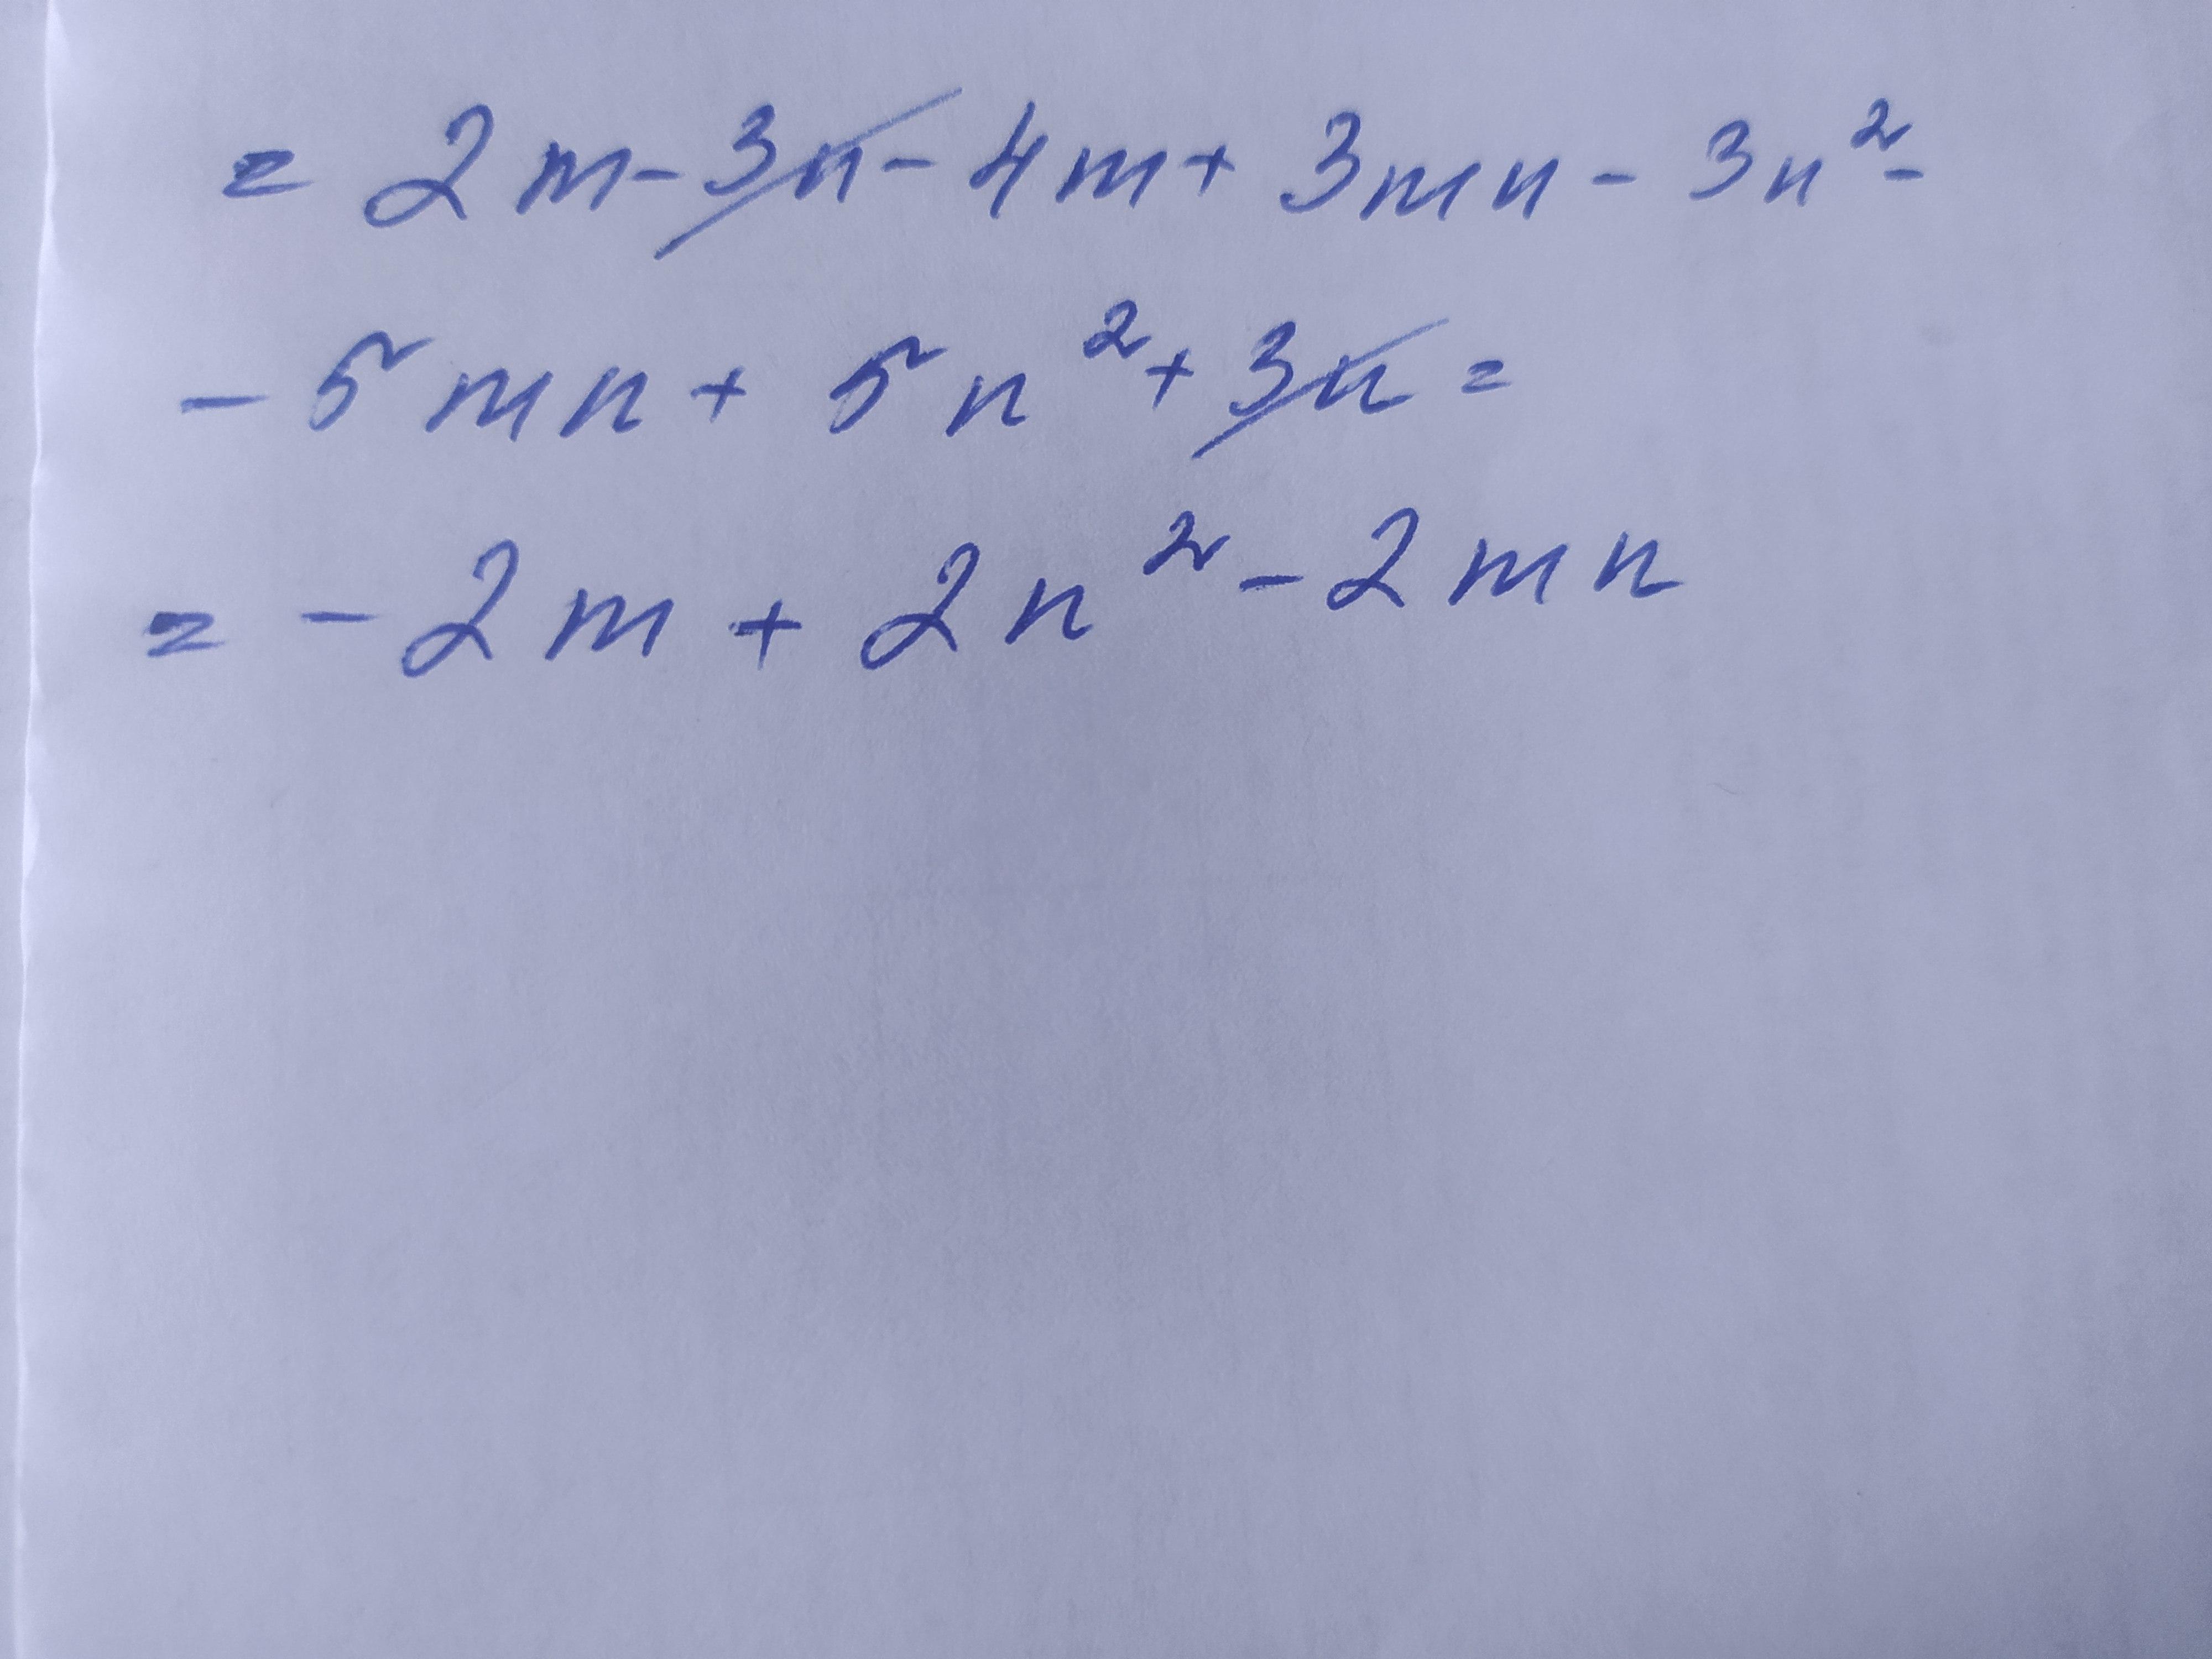 = 2m - 3n - 4m + 3mn - 3n² -
- 5mn + 5n² + 3n =
= - 2m + 2n² - 2mn